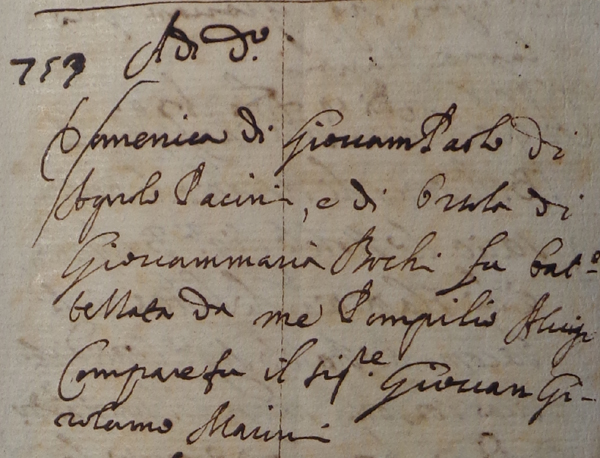 759 Adi d.º
Domenica di Giovam Paolo di
Agnolo Pacini, e di Orsola di
Giovammaria Bochi fu bat=
tezzata da me Pompilio Aluigi
Compare fu il sig.re Giovan Gi-
rolamo Marini